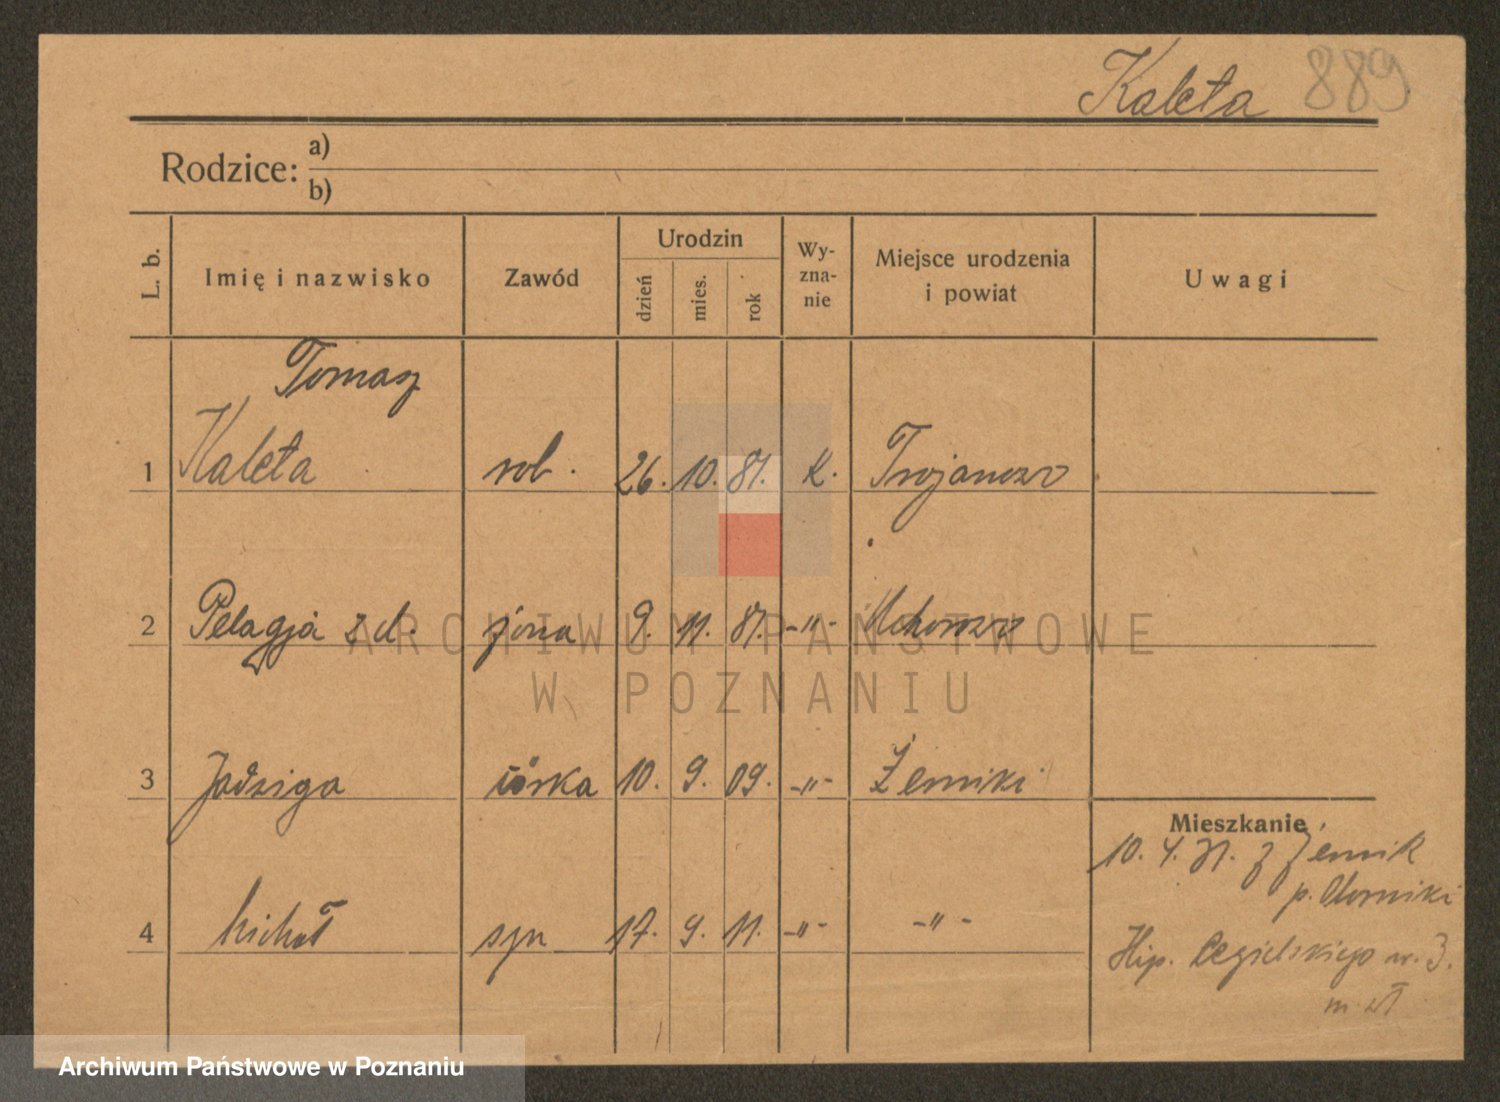 Kaleta 889
Rodzice: a)
b)
L. b. Imię i nazwisko Zawód Urodzin dzień mies. rok Wy-zna-nie Miejsce urodzenia i powiat Uwagi
Tomasz
1 Kaleta rob. 26. 10. 81. K. Trojanowo
2 Pelagja z d. żona 9. 11. 81. -"- Uchorowo
3 Jadwiga córka 10. 9. 09. -"- Żerniki
4 Michał syn 17. 9. 11. -"- -"-
Mieszkanie
10. 4. 31. z Żernik
p. Kórniki
Hip. Cegielskiego nr. 3.
ARCHIWUM PAŃSTWOWE
W POZNANIU
Archiwum Państwowe w Poznaniu